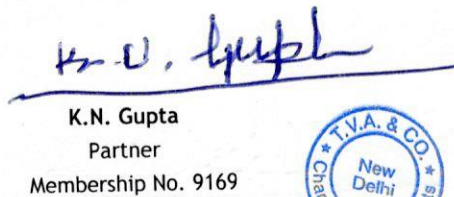 K.N. Gupta
K.N. Gupta
Partner
Membership No. 9169
T.V.A. & CO.
New
Delhi